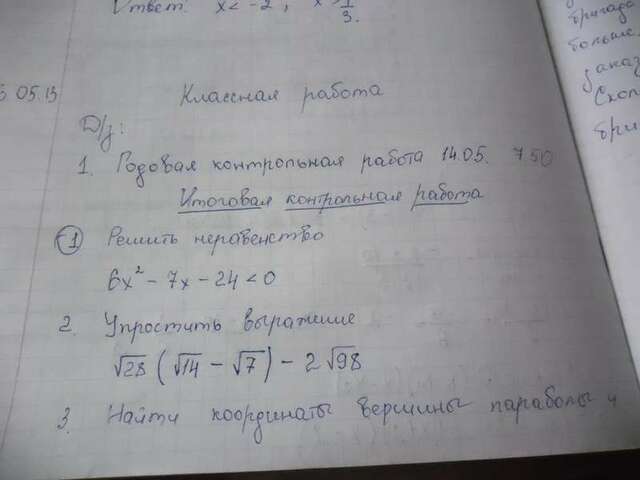 Ответ: x < -2, x > 1/3.
05.13
Классная работа
Д/з:
1. Годовая контрольная работа 14.05. 7 50
Итоговая контрольная работа
1 Решить неравенство
6x² - 7x - 24 < 0
2. Упростить выражение
√28 (√14 - √7) - 2√98
3. Найти координаты вершины параболы и
бригада
больше
заказ
Скол
бри